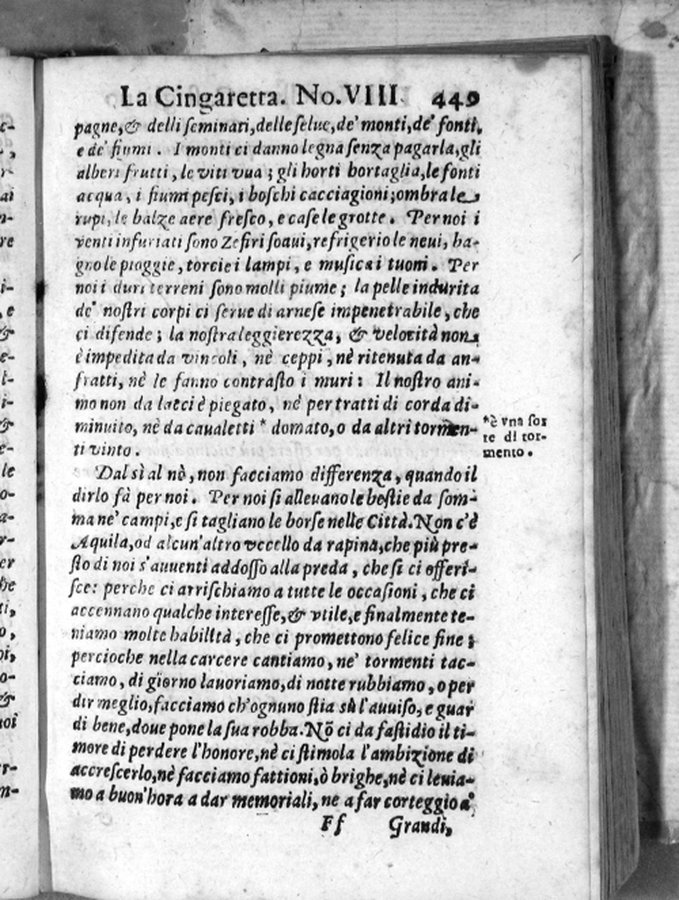 La Cingaretta. No. VIII. 449
pagne, & delli seminati, delle selue, de' monti, de' fonti,
e de' fiumi. I monti ci danno legna senza pagarla, gli
alberi frutti, le viti vua; gli horti hortaglia, le fonti
acqua, i fiumi pesci, i boschi cacciagioni; ombra le
rupi, le balze aere fresco, e case le grotte. Per noi i
venti infuriati sono Zefiri soaui, refrigerio le neui, ba-
gno le pioggie, torcie i lampi, e musica i tuoni. Per
noi i duri terreni sono molli piume; la pelle indurita
de' nostri corpi ci serue di arnese impenetrabile, che
ci difende; la nostra leggierezza, & velocità non
è impedita da vincoli, nè ceppi, nè ritenuta da an-
fratti, nè le fanno contrasto i muri: Il nostro ani-
mo non da lacci è piegato, nè per tratti di corda di-
minuito, nè da caualetti * domato, o da altri tormen-
ti vinto.
*è vna sor
te di tor-
mento.
Dal sì al nò, non facciamo differenza, quando il
dirlo fà per noi. Per noi si alleuano le bestie da som-
ma ne' campi, e si tagliano le borse nelle Città. Non c'è
Aquila, od alcun'altro vccello da rapina, che più pre-
sto di noi s'auuenti addosso alla preda, che si ci offeri-
sce: perche ci arrischiamo a tutte le occasioni, che ci
accennano qualche interesse, & vtile, e finalmente te-
niamo molte habilità, che ci promettono felice fine;
percioche nella carcere cantiamo, ne' tormenti tac-
ciamo, di giorno lauoriamo, di notte rubbiamo, o per
dir meglio, facciamo ch'ognuno stia sù l'auuiso, e guar
di bene, doue pone la sua robba. Nõ ci da fastidio il ti-
more di perdere l'honore, nè ci stimola l'ambizione di
accrescerlo, nè facciamo fattioni, ò brighe, nè ci leuia-
mo a buon'hora a dar memoriali, ne a far corteggio a'
Ff Grandi,